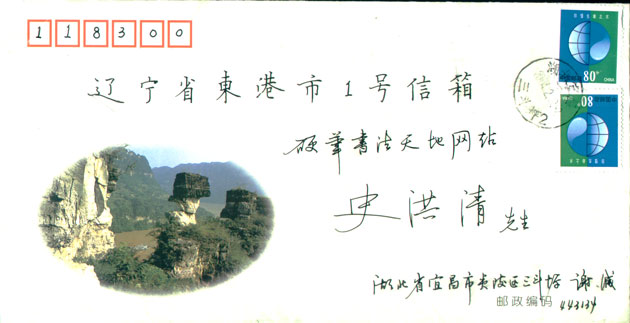 118300
辽宁省東港市1号信箱
硬筆書法天地网站
史洪清 先生
湖北省宜昌市夷陵区三斗坪 谢
邮政编码 443134
80分
CHINA
80分